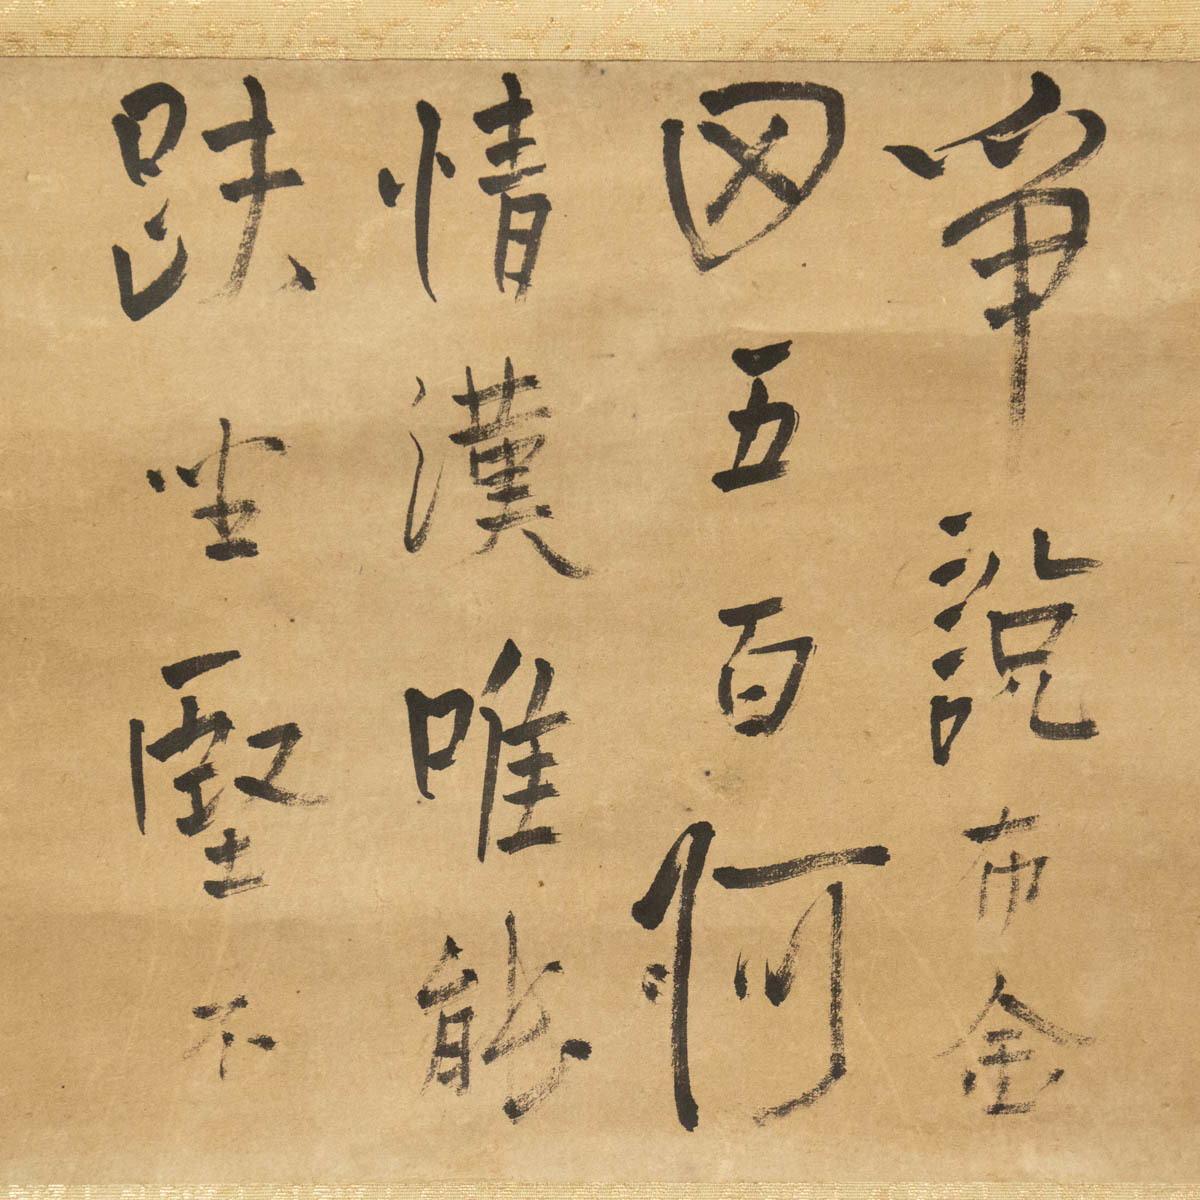 爭説布金
因五百何
情漢唯能
趺坐堅不